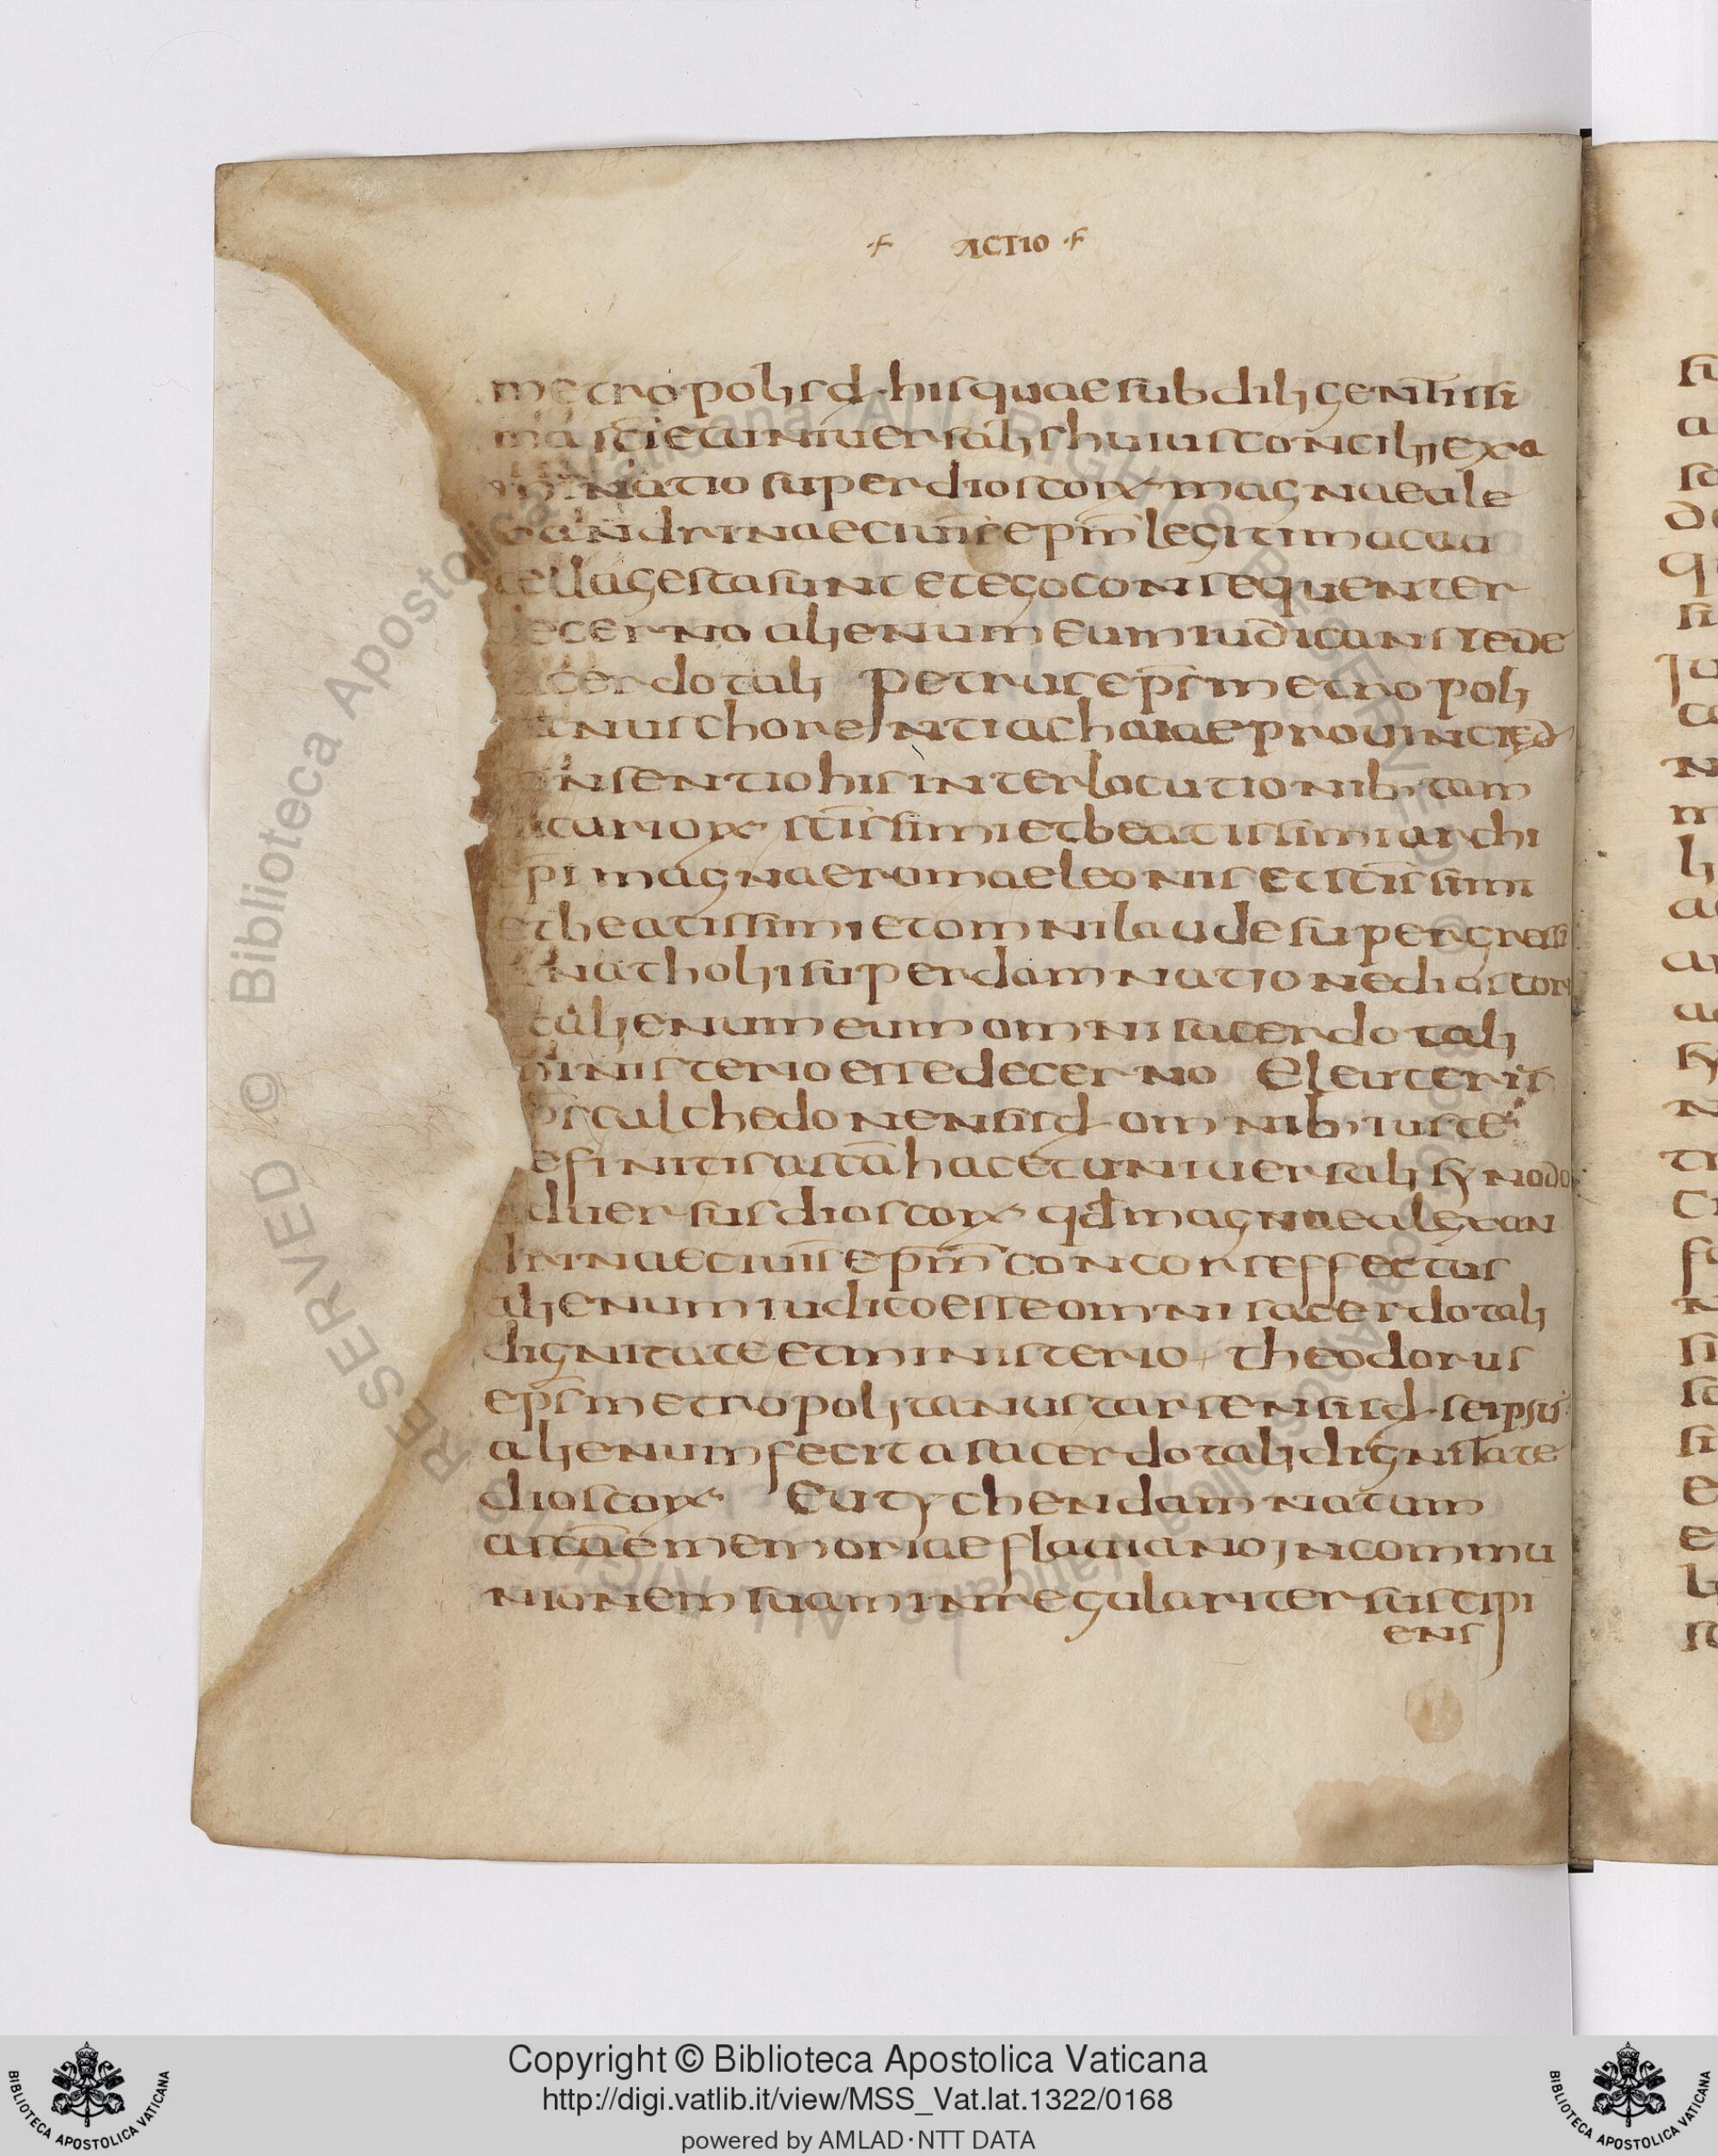 ACTIO
metropolis d· his quae sub diligentissi
ma scī et universalis huius concilii exa
minatio super dioscorū magnae ale
xandrinae civit̄ ep̄m legitima cau
tella gesta sunt et ego consequenter
decerno alienum eum iudicans sede
sacerdotali Petrus ep̄s metropoli
tanus chorentiachaiae provinciȩ d·
consentio his interlocutionib; tam
vicariorū sc̄issimi et beatissimi archi
epi magnae romae leonis et sc̄issimi
et beatissimi et omni laude supergressi
anatholi super damnatione dioscorī
et alienum eum omni sacerdotali
ministerio esse decerno Eleuteris
ep̄s calchedonensis d· omnib; iuste
definitis a sc̄a hac et universali synodo
adversus dioscorū qd̄ magnae alexan
drinae civit̄ ep̄m concors effectus
alienum iudico esse omni sacerdotali
dignitate et ministerio theodorus
ep̄s metropolitanus tarsensis d· seipsū
alienum fecit a sacerdotali dignitate
dioscorū Eutychen damnatum
a sc̄ae memoriae flaviano in commu
nionem suam inregulariter suscipi
ens
Copyright © Biblioteca Apostolica Vaticana
http://digi.vatlib.it/view/MSS_Vat.lat.1322/0168
powered by AMLAD·NTT DATA
BIBLIOTECA APOSTOLICA VATICANA
BIBLIOTECA APOSTOLICA VATICANA